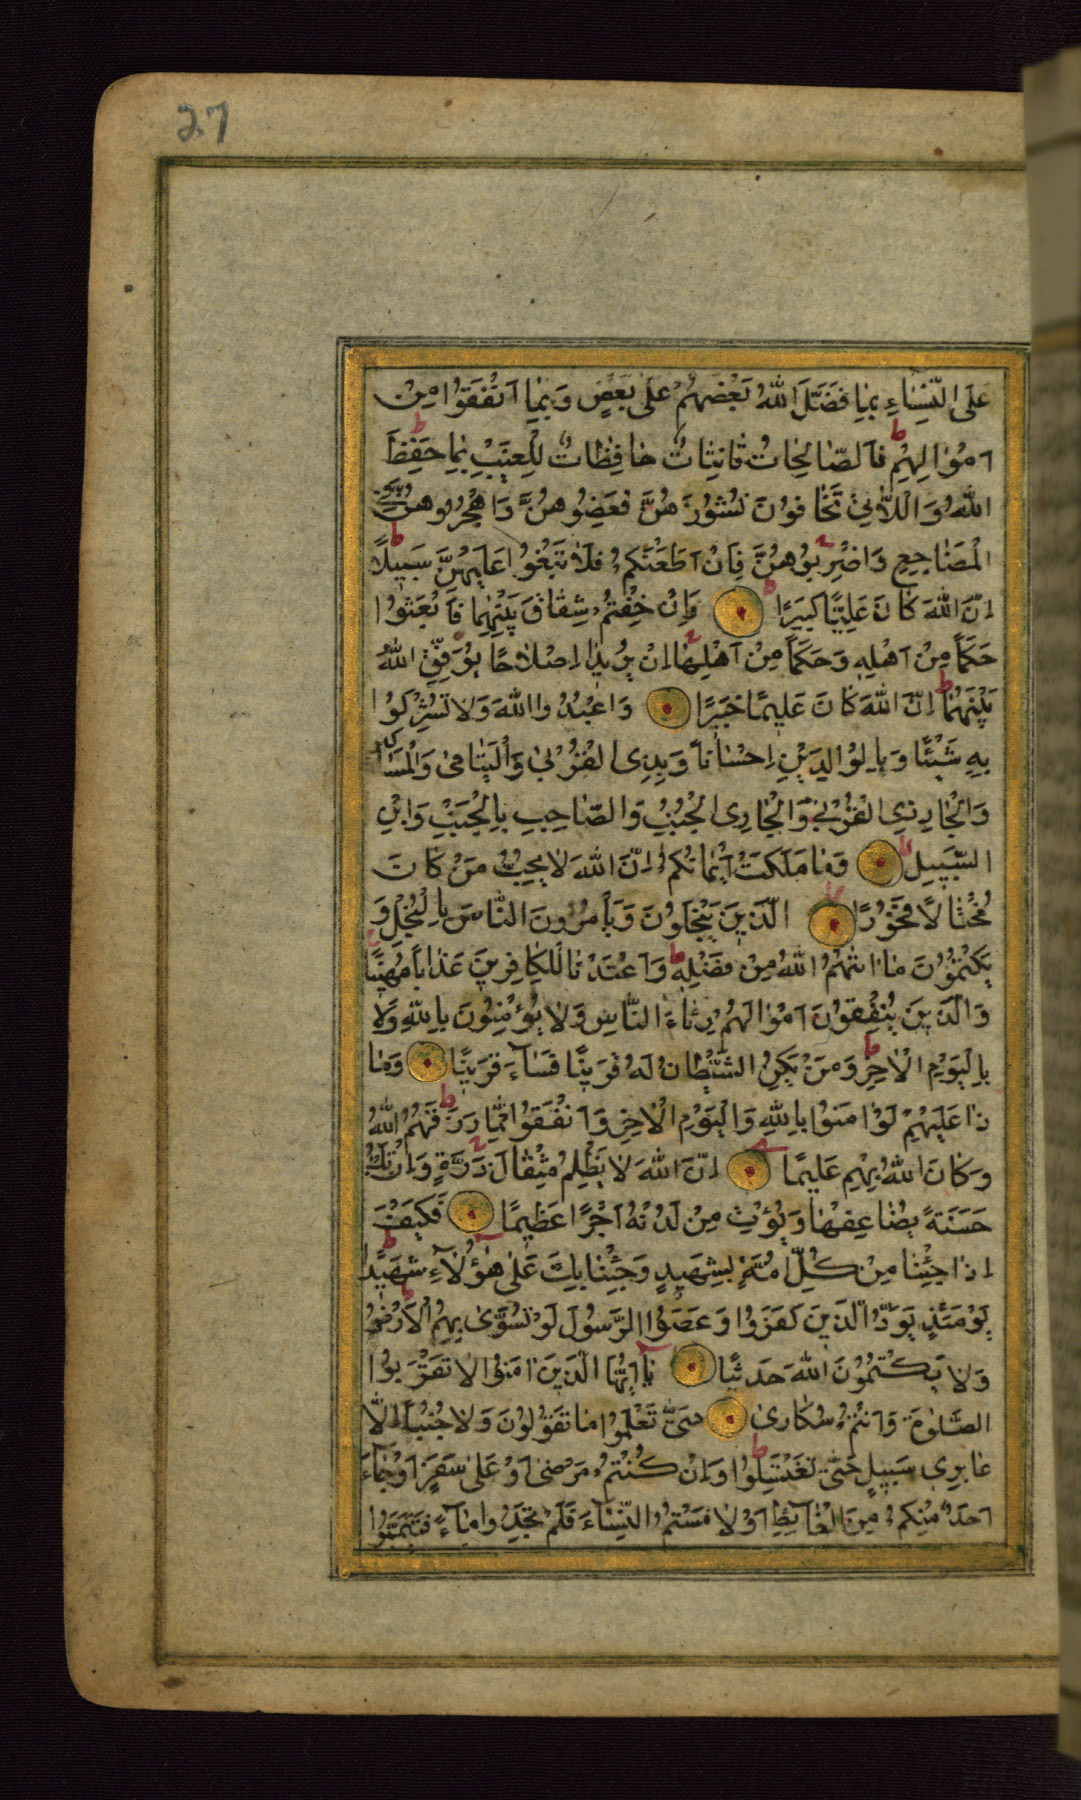 27
عَلَى النِّسَاءِ بِمَا فَضَّلَ اللهُ بَعْضَهُمْ عَلَى بَعْضٍ وَبِمَا اَنْفَقُوا مِنْ
اَمْوَالِهِمْ فَالصَّالِحَاتُ قَانِتَاتٌ حَافِظَاتٌ لِلْغَيْبِ بِمَا حَفِظَ
اللهُ وَاللَّاتِي تَخَافُونَ نُشُوزَهُنَّ فَعِظُوهُنَّ وَاهْجُرُوهُنَّ فِي
الْمَضَاجِعِ وَاضْرِبُوهُنَّ فَاِنْ اَطَعْنَكُمْ فَلَا تَبْغُوا عَلَيْهِنَّ سَبِيلًا
اِنَّ اللهَ كَانَ عَلِيًّا كَبِيرًا وَاِنْ خِفْتُمْ شِقَاقَ بَيْنِهِمَا فَابْعَثُوا
حَكَمًا مِنْ اَهْلِهِ وَحَكَمًا مِنْ اَهْلِهَا اِنْ يُرِيدَا اِصْلَاحًا يُوَفِّقِ اللهُ
بَيْنَهُمَا اِنَّ اللهَ كَانَ عَلِيمًا خَبِيرًا وَاعْبُدُوا اللهَ وَلَا تُشْرِكُوا
بِهِ شَيْئًا وَبِالْوَالِدَيْنِ اِحْسَانًا وَبِذِي الْقُرْبَى وَالْيَتَامَى وَالْمَسَاكِينِ
وَالْجَارِ ذِي الْقُرْبَى وَالْجَارِ الْجُنُبِ وَالصَّاحِبِ بِالْجَنْبِ وَابْنِ
السَّبِيلِ وَمَا مَلَكَتْ اَيْمَانُكُمْ اِنَّ اللهَ لَا يُحِبُّ مَنْ كَانَ
مُخْتَالًا فَخُورًا الَّذِينَ يَبْخَلُونَ وَيَأْمُرُونَ النَّاسَ بِالْبُخْلِ وَ
يَكْتُمُونَ مَا اٰتٰهُمُ اللهُ مِنْ فَضْلِهِ وَاَعْتَدْنَا لِلْكَافِرِينَ عَذَابًا مُهِينًا
وَالَّذِينَ يُنْفِقُونَ اَمْوَالَهُمْ رِئَاءَ النَّاسِ وَلَا يُؤْمِنُونَ بِاللهِ وَلَا
بِالْيَوْمِ الْاٰخِرِ وَمَنْ يَكُنِ الشَّيْطَانُ لَهُ قَرِينًا فَسَاءَ قَرِينًا وَمَا
ذَا عَلَيْهِمْ لَوْ اٰمَنُوا بِاللهِ وَالْيَوْمِ الْاٰخِرِ وَاَنْفَقُوا مِمَّا رَزَقَهُمُ اللهُ
وَكَانَ اللهُ بِهِمْ عَلِيمًا اِنَّ اللهَ لَا يَظْلِمُ مِثْقَالَ ذَرَّةٍ وَاِنْ تَكُ
حَسَنَةً يُضَاعِفْهَا وَيُؤْتِ مِنْ لَدُنْهُ اَجْرًا عَظِيمًا فَكَيْفَ
اِذَا جِئْنَا مِنْ كُلِّ اُمَّةٍ بِشَهِيدٍ وَجِئْنَا بِكَ عَلَى هٰؤُلَاءِ شَهِيدًا
يَوْمَئِذٍ يَوَدُّ الَّذِينَ كَفَرُوا وَعَصَوُا الرَّسُولَ لَوْ تُسَوَّى بِهِمُ الْاَرْضُ
وَلَا يَكْتُمُونَ اللهَ حَدِيثًا يَا اَيُّهَا الَّذِينَ اٰمَنُوا لَا تَقْرَبُوا
الصَّلٰوةَ وَاَنْتُمْ سُكَارَى حَتَّى تَعْلَمُوا مَا تَقُولُونَ وَلَا جُنُبًا اِلَّا
عَابِرِي سَبِيلٍ حَتَّى تَغْتَسِلُوا وَاِنْ كُنْتُمْ مَرْضَى اَوْ عَلَى سَفَرٍ اَوْ جَاءَ
اَحَدٌ مِنْكُمْ مِنَ الْغَائِطِ اَوْ لَامَسْتُمُ النِّسَاءَ فَلَمْ تَجِدُوا مَاءً فَتَيَمَّمُوا